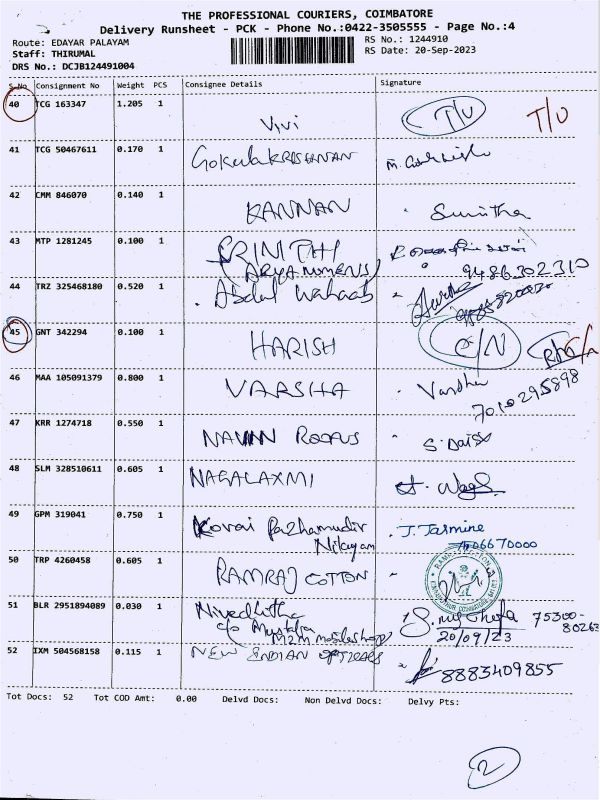 THE PROFESSIONAL COURIERS, COIMBATORE
Delivery Runsheet - PCK - Phone No.:0422-3505555 - Page No.:4
Route: EDAYAR PALAYAM RS No.: 1244910
Staff: THIRUMAL RS Date: 20-Sep-2023
DRS No.: DCJB124491004
S.No Consignment No Weight PCS Consignee Details Signature
40 TCG 163347 1.205 1 Vivi T/U T/U
41 TCG 50467611 0.170 1 Gokulakrishnan
42 CMM 846070 0.140 1 KANNAN Sumitha
43 MTP 1281245 0.100 1 SRINITHI
9486302310
44 TRZ 325468180 0.520 1 Abdul Wahaab
45 GNT 342294 0.100 1 HARISH C/N
46 MAA 105091379 0.800 1 VARSHA Vardha
7010295898
47 KRR 1274718 0.550 1 NAVIN
48 SLM 328510611 0.605 1 NAGALAXMI
49 GPM 319041 0.750 1 Kovai Pazhamudir J. Jasmine
Nilayam
50 TRP 4260458 0.605 1 RAMRAJ COTTON
51 BLR 2951894089 0.030 1 Nivedhitha 75300-
c/o Mustafa 80263
20/09/23
52 IXM 504568158 0.115 1 NEW INDIAN OPTICALS 8883409855
Tot Docs: 52 Tot COD Amt: 0.00 Delvd Docs: Non Delvd Docs: Delvy Pts:
2